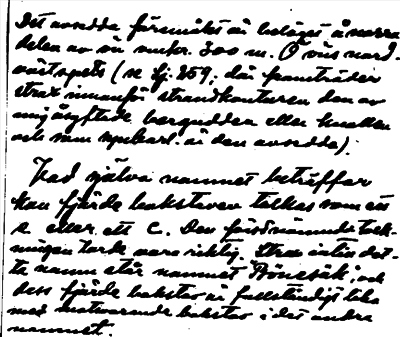 Det avsedda föremålet är beläget å norra
delen av ön omkr. 300 m. O öns nord-
västspets (se lj. 259; där framträder
strax innanför strandkonturen den av
mig åsyftade bergudden eller knallen
och som uppenbarl. är den avsedda).
Vad själva namnet beträffar
kan fjärde bokstaven tolkas som en
e eller ett c. Den förstnämnda tolk-
ningen torde vara riktig. Strax intill det-
ta namn står namnet "Rönesäk", och
dess fjärde bokstav är fullständigt lika
med motsvarande bokstav i det andra
namnet.